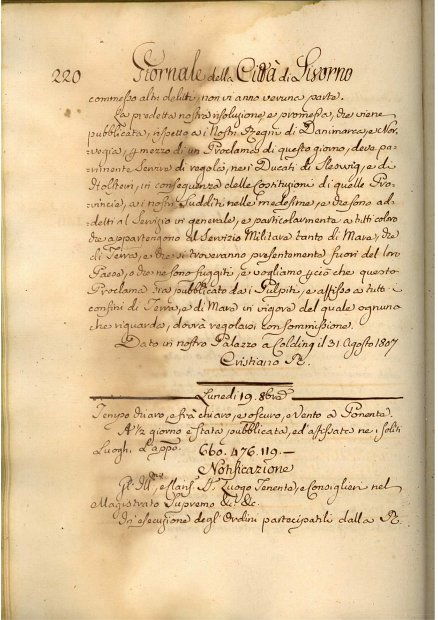 220 Giornale della Città di Livorno
commesso altri delitti, non vi anno veruna parte.
La predetta nostra risoluzione e promessa, che viene
pubblicata, rispetto a i Nostri Regni di Danimarca, e Nor
vegia, p mezzo di un Proclama di questo giorno, deve pa
rimente servire di regola, nei Ducati di Sleswig, e da
Holstein, in conseguenza delle Costituzioni di quelle Pro
vincie, a i nostri Sudditi nelle medesime, e che sono ad
detti al Servizio in generale, e particolarmente a tutti coloro
che appartengono al Servizio Militare tanto di Mare, che
di Terra, e che si troveranno presentemente fuori del loro
Paese, o che ne sono fuggiti, e vogliamo p ciò che questo
Proclama sia pubblicato da i Pulpiti, e affisso a tutti i
confini di Terra, e di Mare in vigore del quale ognuno
che riguarda, dovrà regolarsi con sommissione.
Dato in nostro Palazzo a Colding il 31. Agosto 1807
Cristiano R.
Lunedì 19. 8bre
Tempo vario, e frà chiaro, e oscuro, e Vento a Ponente.
A ½ giorno è stata pubblicata, ed affissata ne i soliti
Luoghi L'appo.
660. 476. 119.—
Notificazione
Gl' Ill, e Luogo Tenente, e Consiglieri nel
Magistrato Supremo &c. &c.
In esecuzione degl' Ordini partecipatili dalla R.